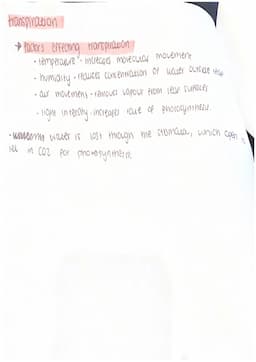 transpiration
→ factors affecting transpiration
• temperature - increases molecular movement
- humidity - reduces concentration of water outside
- air movement - removes vapour from leaf surfaces
- light intensity - increases rate of photosynthesis.
- water is lost though the stomata, which open
in CO2 for photosynthesis